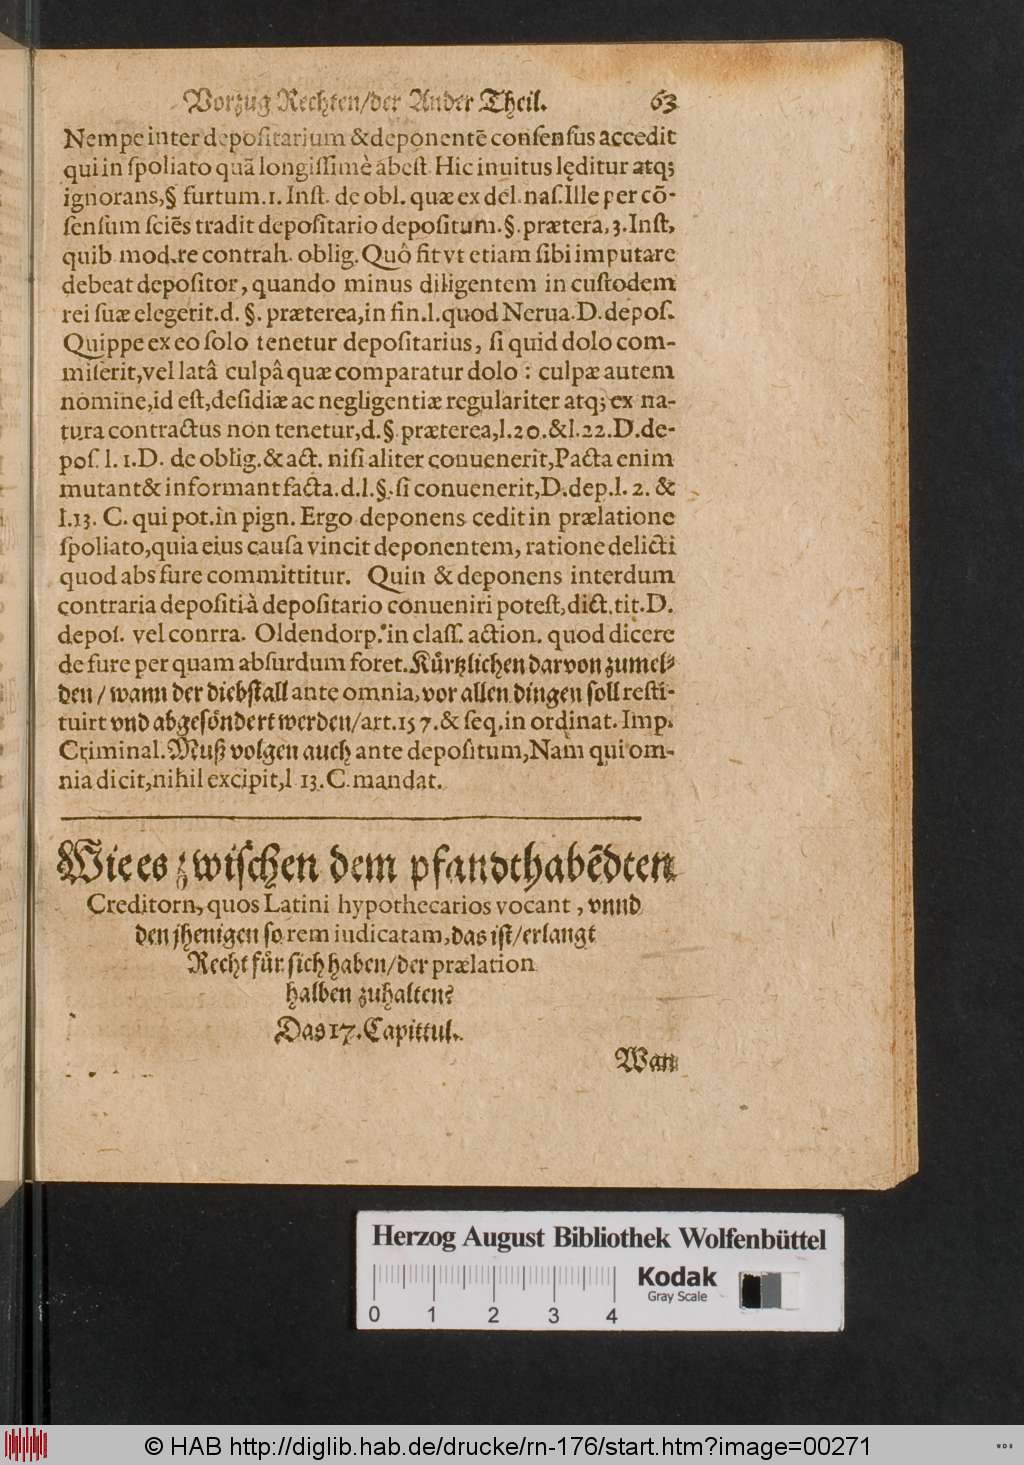 Vorzug Rechten/der Ander Theil. 63
Nempe inter depositarium & deponentē consensus accedit
qui in spoliato quā longissimè abest. Hic inuitus lęditur atq;
ignorans,§ furtum.1. Inst. de obl. quæ ex del. nas. Ille per cō-
sensum sciēs tradit depositario depositum.§. prætera,3. Inst,
quib mod. re contrah. oblig. Quô fit vt etiam sibi imputare
debeat depositor, quando minus diligentem in custodem
rei suæ elegerit.d. §. præterea,in fin.l. quod Nerua. D. depos.
Quippe ex eo solo tenetur depositarius, si quid dolo com-
miserit,vel latâ culpâ quæ comparatur dolo : culpæ autem
nomine,id est,desidiæ ac negligentiæ regulariter atq; ex na-
tura contractus non tenetur,d.§. præterea,l.20.&l.22.D.de-
pos. l. 1.D. de oblig.& act. nisi aliter conuenerit,Pacta enim
mutant & informant facta.d.l.§. si conuenerit,D.dep.l. 2. &
l.13. C. qui pot.in pign. Ergo deponens cedit in prælatione
spoliato,quia eius causa vincit deponentem, ratione delicti
quod abs fure committitur. Quin & deponens interdum
contraria depositi à depositario conueniri potest,dict.tit.D.
depos. vel conrra. Oldendorp. in class. action. quod dicere
de fure per quam absurdum foret. Kürtzlichen darvon zumel-
den / wann der diebstall ante omnia, vor allen dingen soll resti-
tuirt vnd abgesöndert werden/art.157.& seq.in ordinat. Imp.
Criminal. Muß volgen auch ante depositum, Nam qui om-
nia dicit,nihil excipit,l 13.C. mandat.
Wie es zwischen dem pfandthabēdten
Creditorn, quos Latini hypothecarios vocant, vnnd
den jhenigen so rem iudicatam, das ist/erlangt
Recht für sich haben/der prælation
halben zuhalten?
Das 17. Capittul.
Wan
Herzog August Bibliothek Wolfenbüttel
Kodak
Gray Scale
0 1 2 3 4
© HAB http://diglib.hab.de/drucke/rn-176/start.htm?image=00271